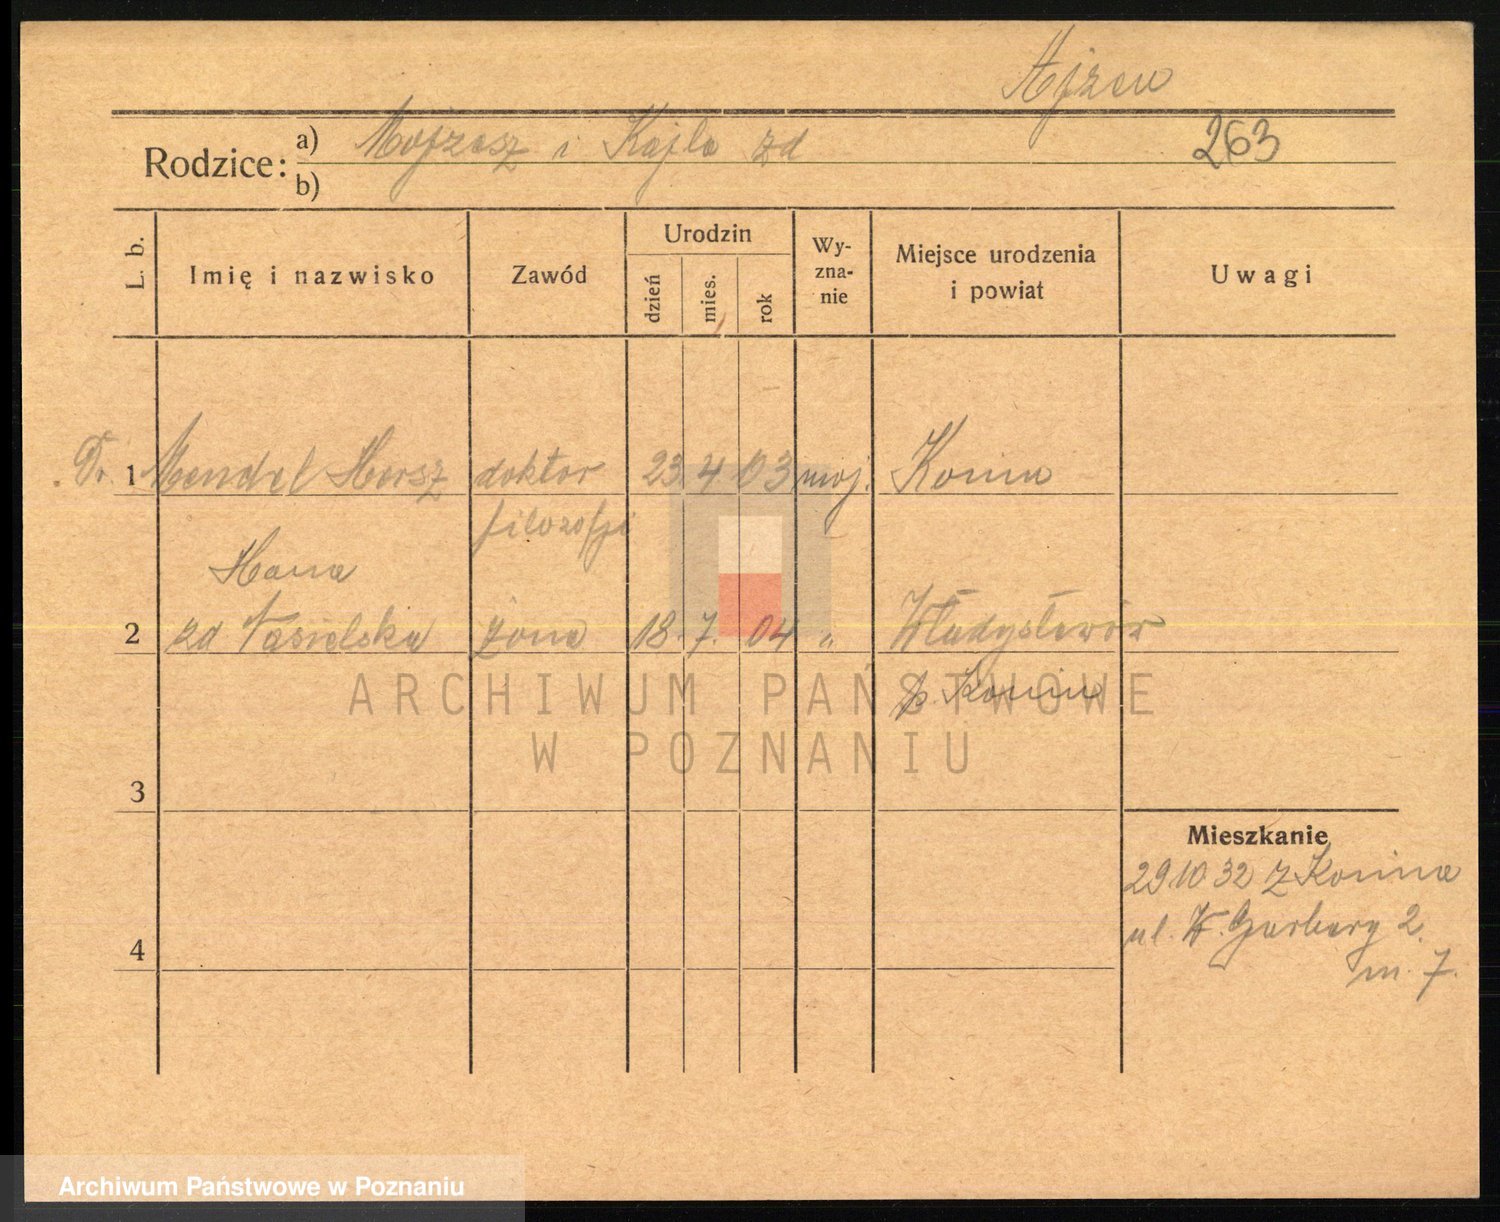 Ajzen
263
Rodzice: a) Mojzesz i Kajla zd
b)
L. b.
Imię i nazwisko
Zawód
Urodzin
dzień
mies.
rok
Wy-
zna-
nie
Miejsce urodzenia
i powiat
Uwagi
Dr. 1 Mendel Hersz doktor 23. 4 03 moj. Konin
filozofji
Hana
2 zd Jasielska żona 18. 7. 04 " Władysławów
p. Konin
ARCHIWUM PAŃSTWOWE
W POZNANIU
3
Mieszkanie
29 10 32 z Konina
ul. W. Garbary 2.
m. 7.
4
Archiwum Państwowe w Poznaniu